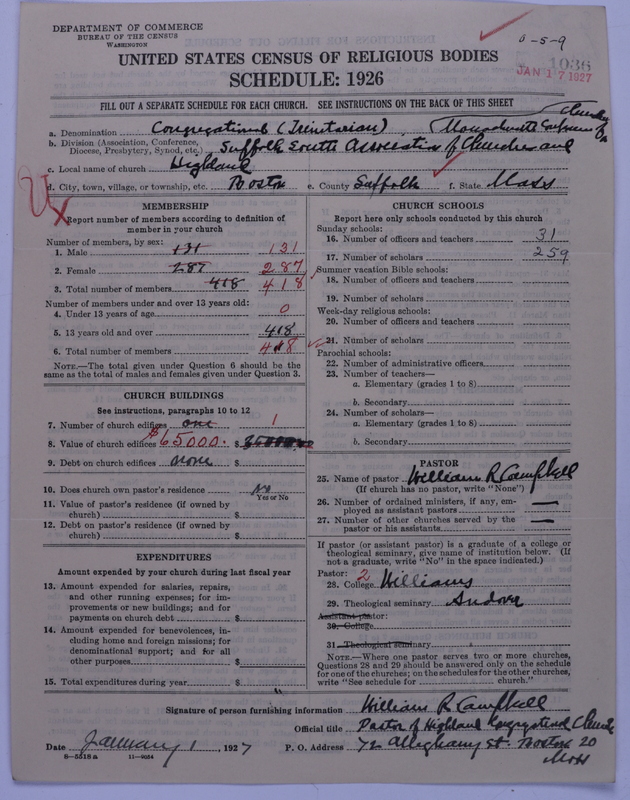 DEPARTMENT OF COMMERCE
BUREAU OF THE CENSUS
WASHINGTON
0-5-9
1036
JAN 17 1927
UNITED STATES CENSUS OF RELIGIOUS BODIES
SCHEDULE: 1926
FILL OUT A SEPARATE SCHEDULE FOR EACH CHURCH. SEE INSTRUCTIONS ON THE BACK OF THIS SHEET
a. Denomination Congregational (Trinitarian), Massachusetts Conference of Churches
b. Division (Association, Conference, Diocese, Presbytery, Synod, etc.) Suffolk South Association of Churches and
c. Local name of church Highland
d. City, town, village, or township, etc. Boston e. County Suffolk f. State Mass
MEMBERSHIP
Report number of members according to definition of member in your church
Number of members, by sex:
1. Male 131 131
2. Female 287 287
3. Total number of members 418 418
Number of members under and over 13 years old:
4. Under 13 years of age 0
5. 13 years old and over 418
6. Total number of members 418
NOTE.—The total given under Question 6 should be same as the total of males and females given under Question 3.
CHURCH BUILDINGS
See instructions, paragraphs 10 to 12
7. Number of church edifices one 1
8. Value of church edifices $65000. $
9. Debt on church edifices none $
10. Does church own pastor's residence No
Yes or No
11. Value of pastor's residence (if owned by church) $
12. Debt on pastor's residence (if owned by church) $
EXPENDITURES
Amount expended by your church during last fiscal year
13. Amount expended for salaries, repairs, and other running expenses; for improvements or new buildings; and for payments on church debt $
14. Amount expended for benevolences, including home and foreign missions; for denominational support; and for all other purposes $
15. Total expenditures during year $
CHURCH SCHOOLS
Report here only schools conducted by this church
Sunday schools:
16. Number of officers and teachers 31
17. Number of scholars 259
Summer vacation Bible schools:
18. Number of officers and teachers
19. Number of scholars
Week-day religious schools:
20. Number of officers and teachers
21. Number of scholars
Parochial schools:
22. Number of administrative officers
23. Number of teachers—
a. Elementary (grades 1 to 8)
b. Secondary
24. Number of scholars—
a. Elementary (grades 1 to 8)
b. Secondary
PASTOR
25. Name of pastor William R Campbell
(If church has no pastor, write "None")
26. Number of ordained ministers, if any, employed as assistant pastors —
27. Number of other churches served by the pastor or his assistants —
If pastor (or assistant pastor) is a graduate of a college or theological seminary, give name of institution below. (If not a graduate, write "No" in the space indicated.)
Pastor: 2
28. College Williams
29. Theological seminary Andover
Assistant pastor:
30. College
31. Theological seminary
NOTE.—Where one pastor serves two or more churches, Questions 28 and 29 should be answered only on the schedule for one of the churches; on the schedules for the other churches, write "See schedule for church."
Signature of person furnishing information William R Campbell
Official title Pastor of Highland Congregational Church
Date January 1, 1927 P. O. Address 72 Alleghany St. Boston 20
Mass
8—5518 a 11—9054